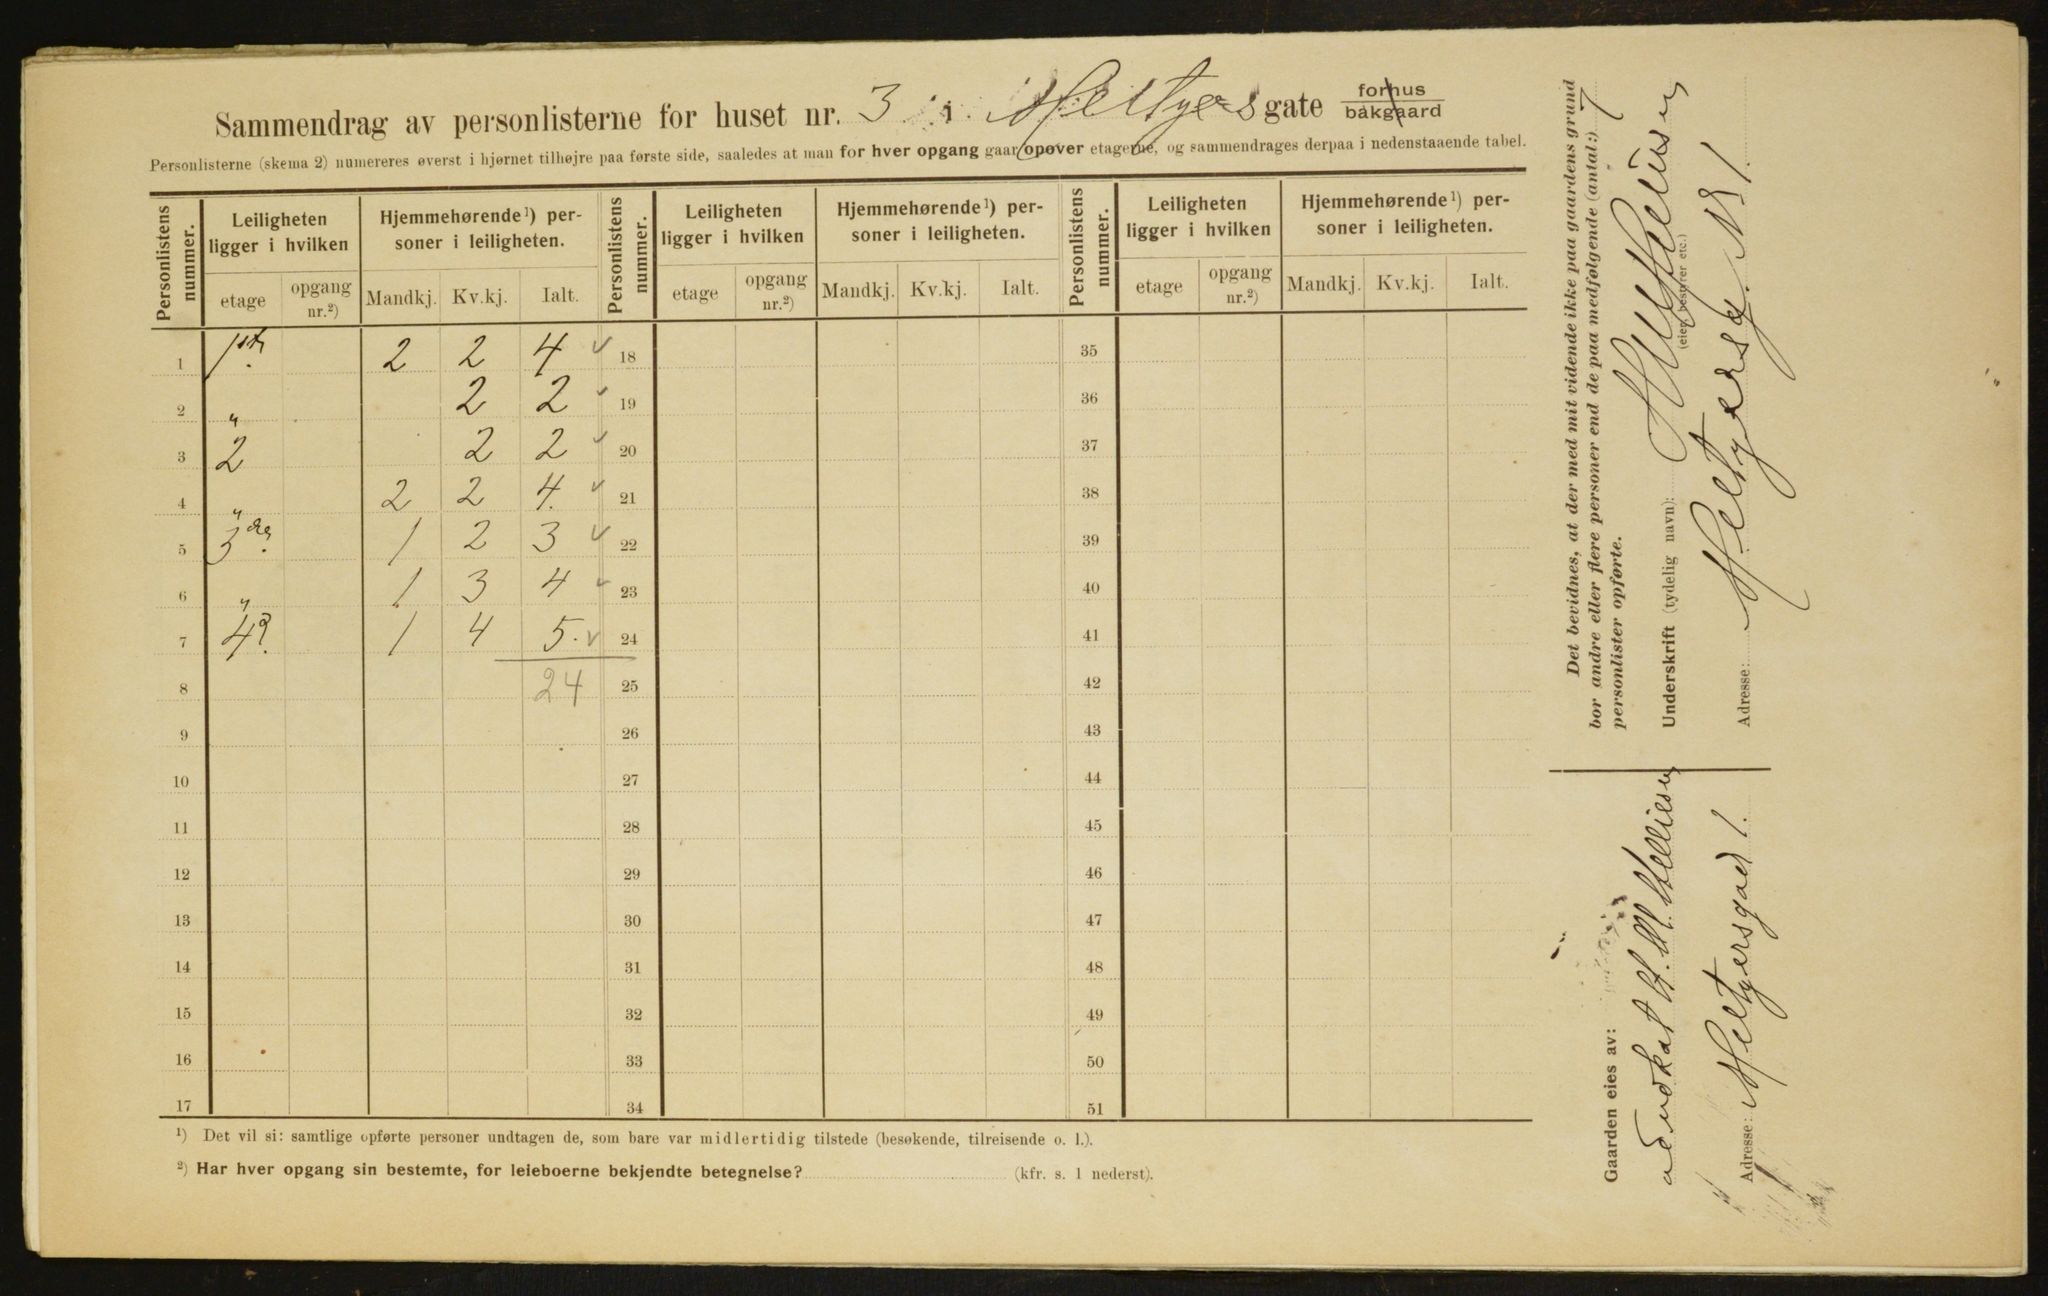 Sammendrag av personlisterne for huset nr. 3 i Meltzers gate forhus bakgaard
Personlisterne (skema 2) numereres øverst i hjørnet tilhøjre paa første side, saaledes at man for hver opgang gaar opover etagerne, og sammendrages derpaa i nedenstaaende tabel.
Personlistens nummer. Leiligheten ligger i hvilken Hjemmehørende¹) personer i leiligheten. Personlistens nummer. Leiligheten ligger i hvilken Hjemmehørende¹) personer i leiligheten. Personlistens nummer. Leiligheten ligger i hvilken Hjemmehørende¹) personer i leiligheten.
etage opgang nr.²) Mandkj. Kv.kj. Ialt. etage opgang nr.²) Mandkj. Kv.kj. Ialt. etage opgang nr.²) Mandkj. Kv.kj. Ialt.
1 1ste 2 2 4 18 35
2 " 2 2 19 36
3 2 2 2 20 37
4 " 2 2 4. 21 38
5 3de. 1 2 3 22 39
6 " 1 3 4 23 40
7 4de. 1 4 5. 24 41
8 24 25 42
9 26 43
10 27 44
11 28 45
12 29 46
13 30 47
14 31 48
15 32 49
16 33 50
17 34 51
¹) Det vil si: samtlige opførte personer undtagen de, som bare var midlertidig tilstede (besøkende, tilreisende o. l.).
²) Har hver opgang sin bestemte, for leieboerne bekjendte betegnelse? (kfr. s. 1 nederst).
Det bevidnes, at der med mit vidende ikke paa gaardens grund
bor andre eller flere personer end de paa medfølgende (antal:) 7
personlister opførte.
Underskrift (tydelig navn):
(eier, bestyrer etc.)
Adresse: Meltzersg. No 1.
Gaarden eies av:
advokat
Adresse: Meltzersgad 1.